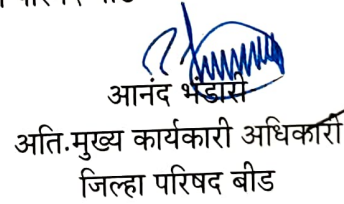 आनंद भंडारी
अति.मुख्य कार्यकारी अधिकारी
जिल्हा परिषद बीड